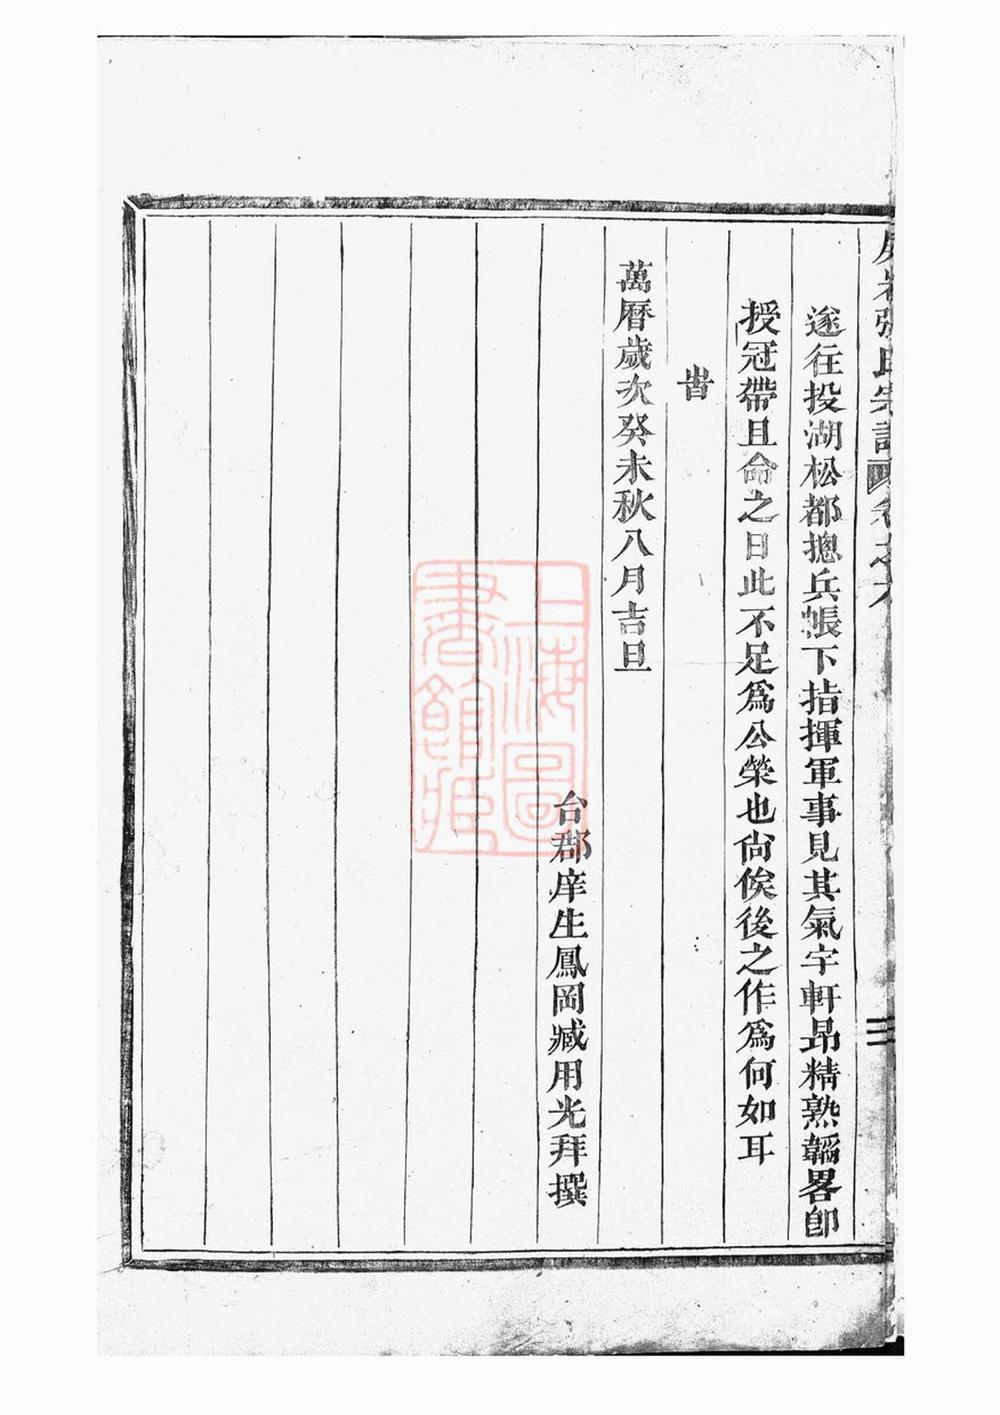 張氏宗譜 卷之六
遂往投湖松都摠兵帳下指揮軍事見其氣宇軒昂精熟韜畧卽
授冠帶且命之曰此不足爲公榮也尙俟後之作爲何如耳
旹
萬曆歲次癸未秋八月吉旦
台郡庠生鳳岡臧用光拜撰
上海圖書館藏